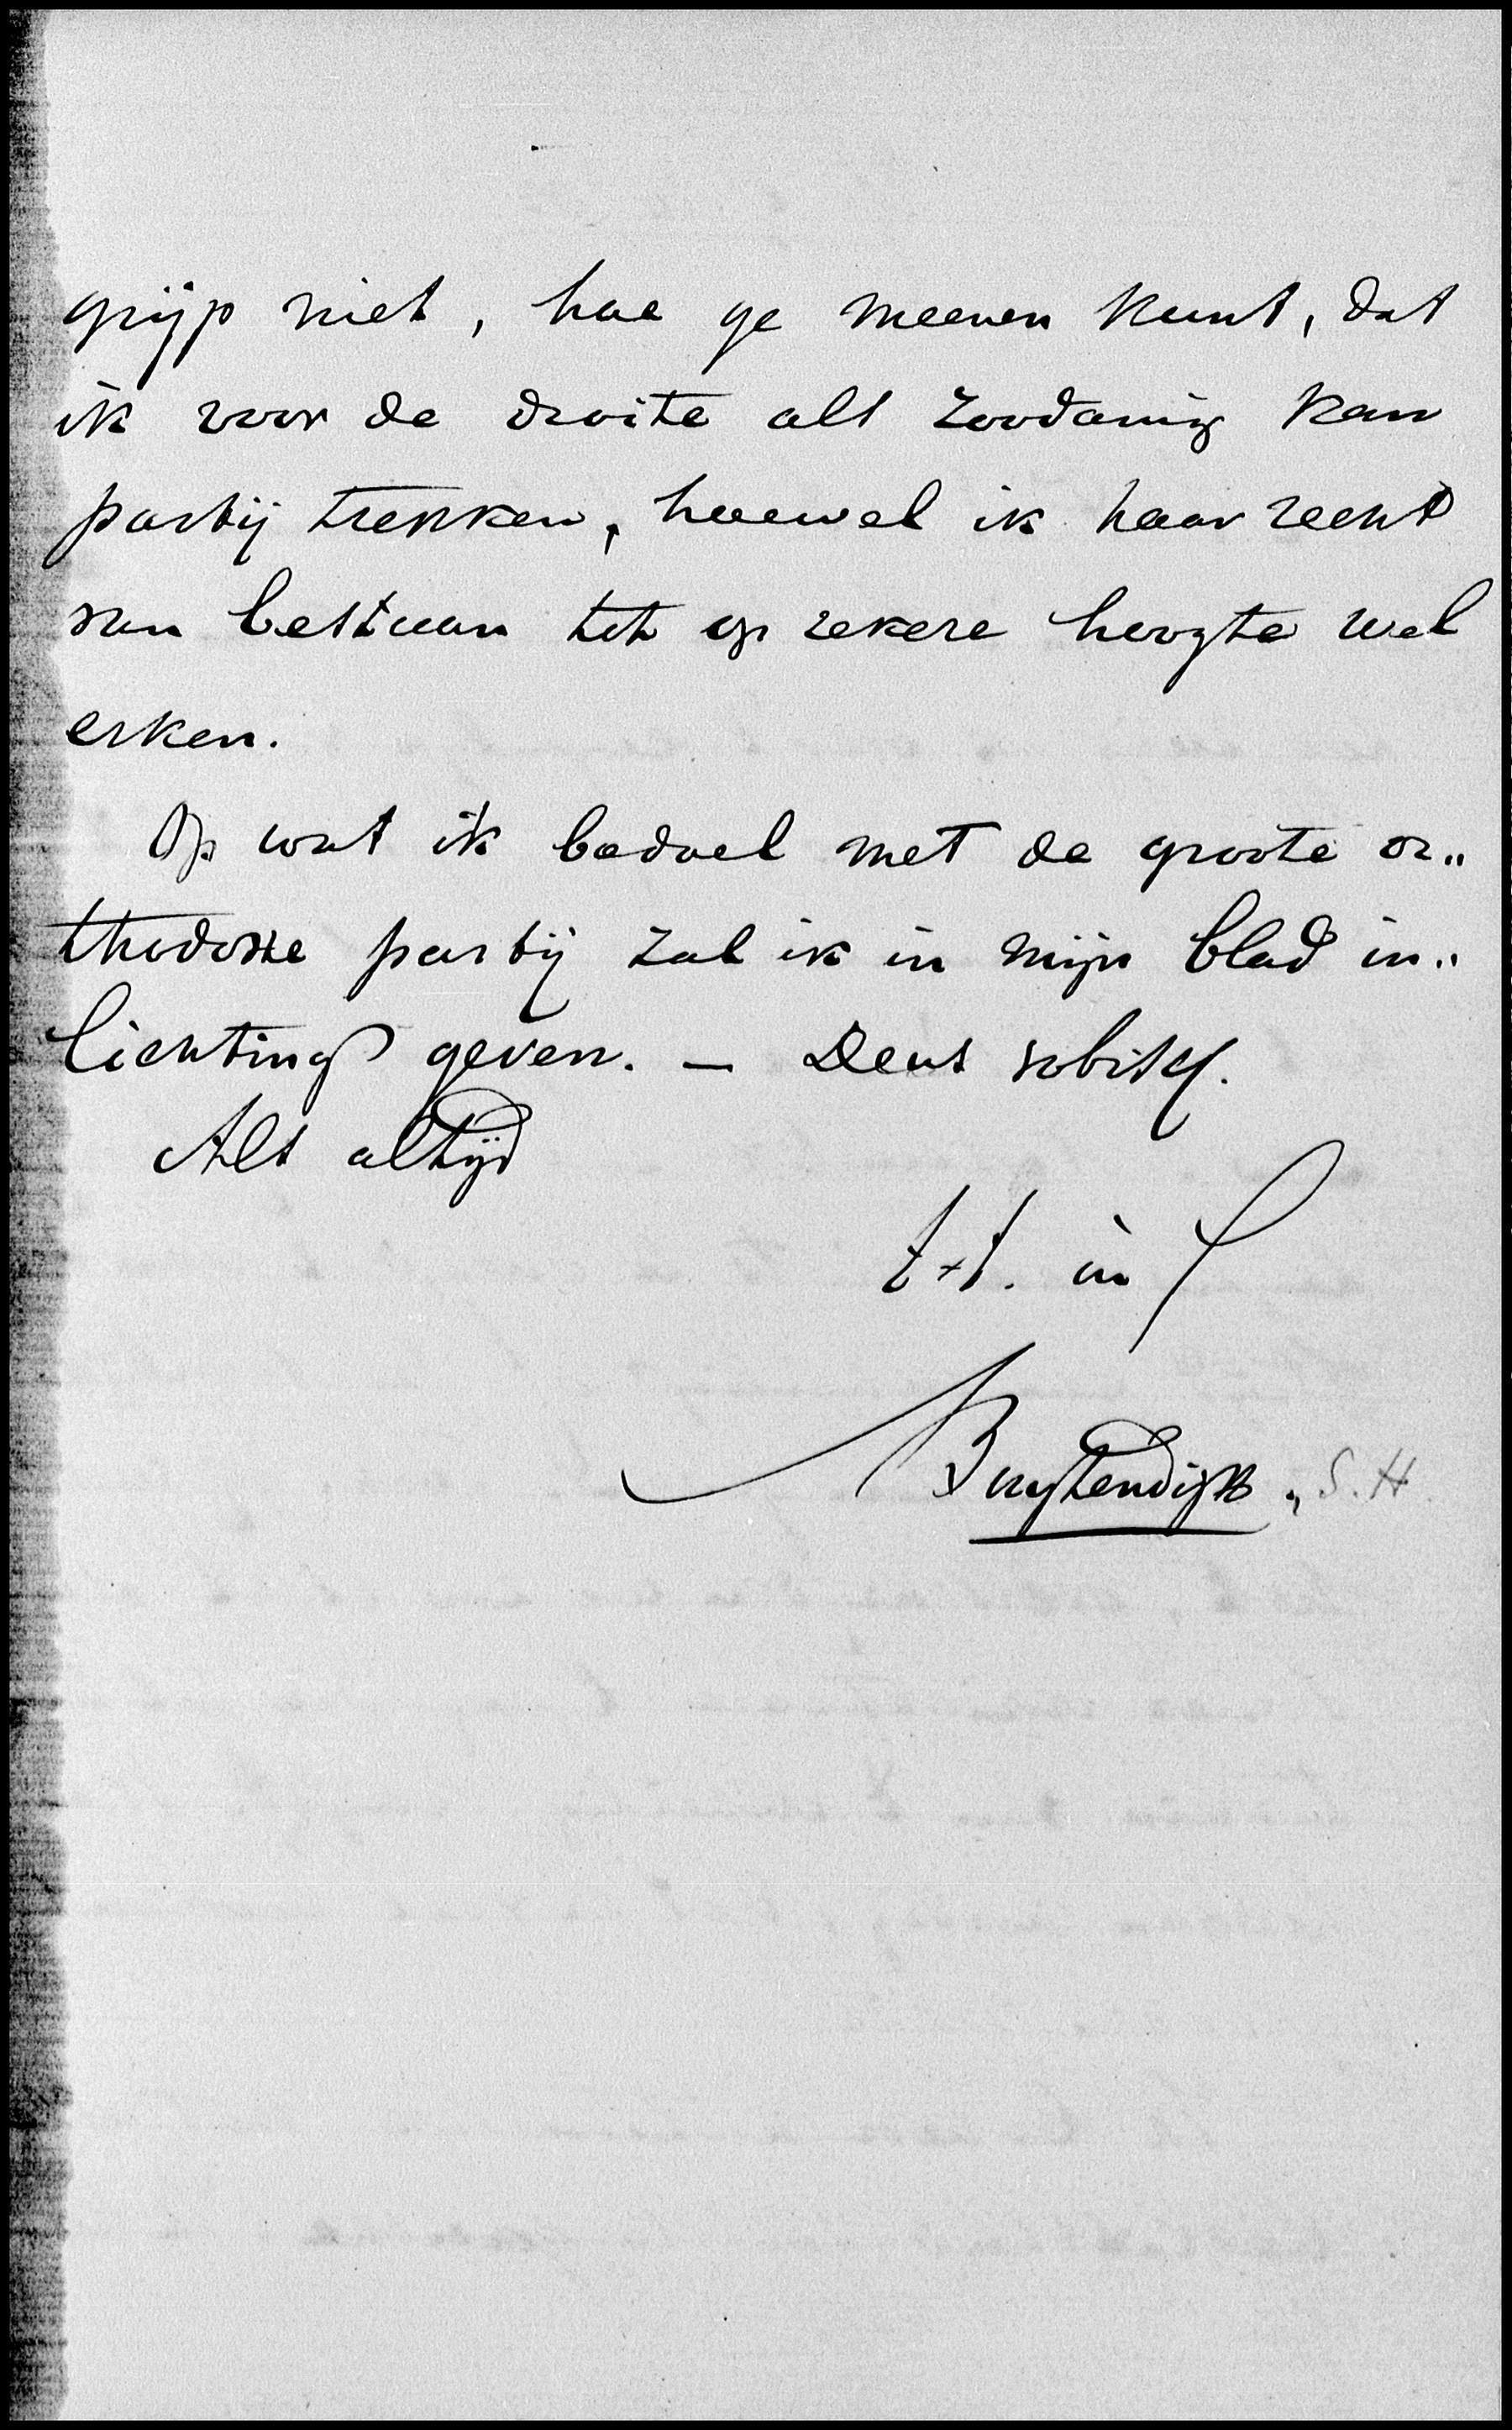 grijp niet, hoe ge meenen kunt, dat
ik voor de droite als zoodanig kan
partij trekken, hoewel ik haar recht
van bestaan tot op zekere hoogte wel
erken.
Op wat ik bedoel met de groote or„
thodoxe partij zal ik in mijn blad in„
lichting geven. — Deus vobisq.
Als altijd
t.t. in
Buytendijk, S.H.